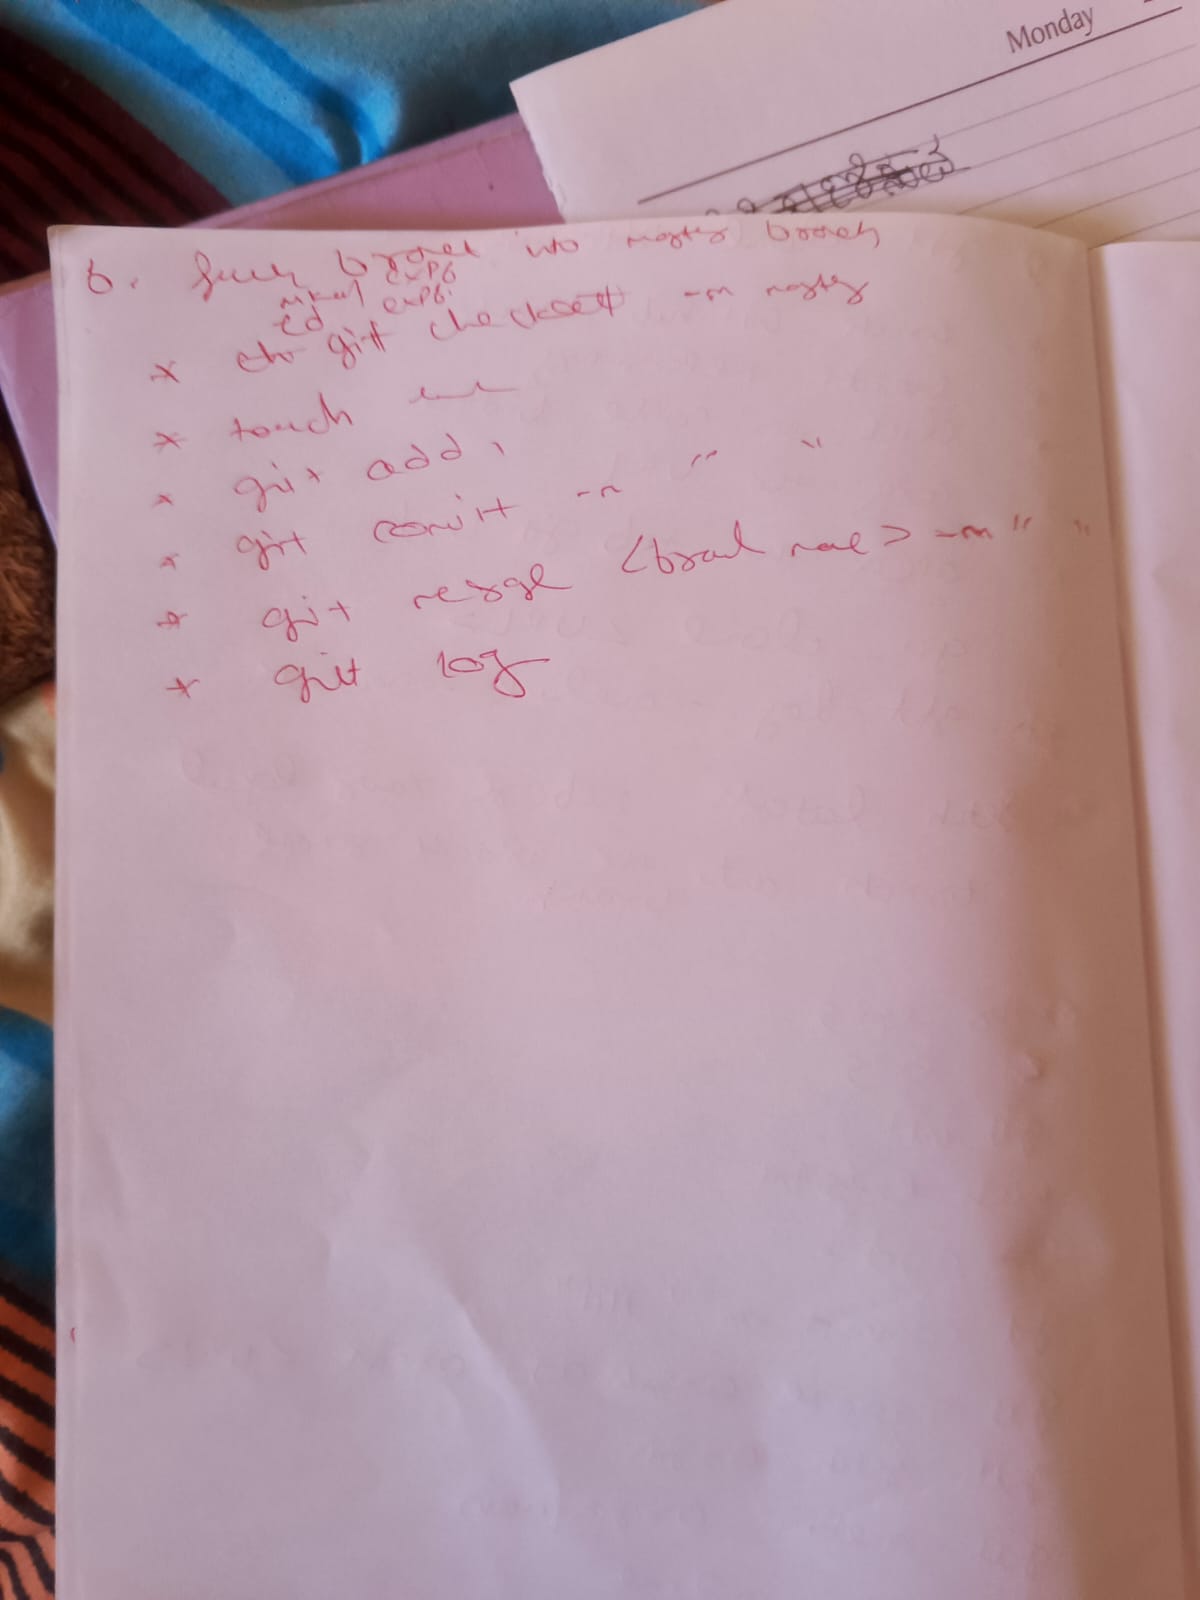 Monday
6. branch into master branch
mkdir exp6
cd exp6
* git checkout -m master
* touch
* git add .
* git commit -m " "
* git merge <branch name> -m " "
* git log